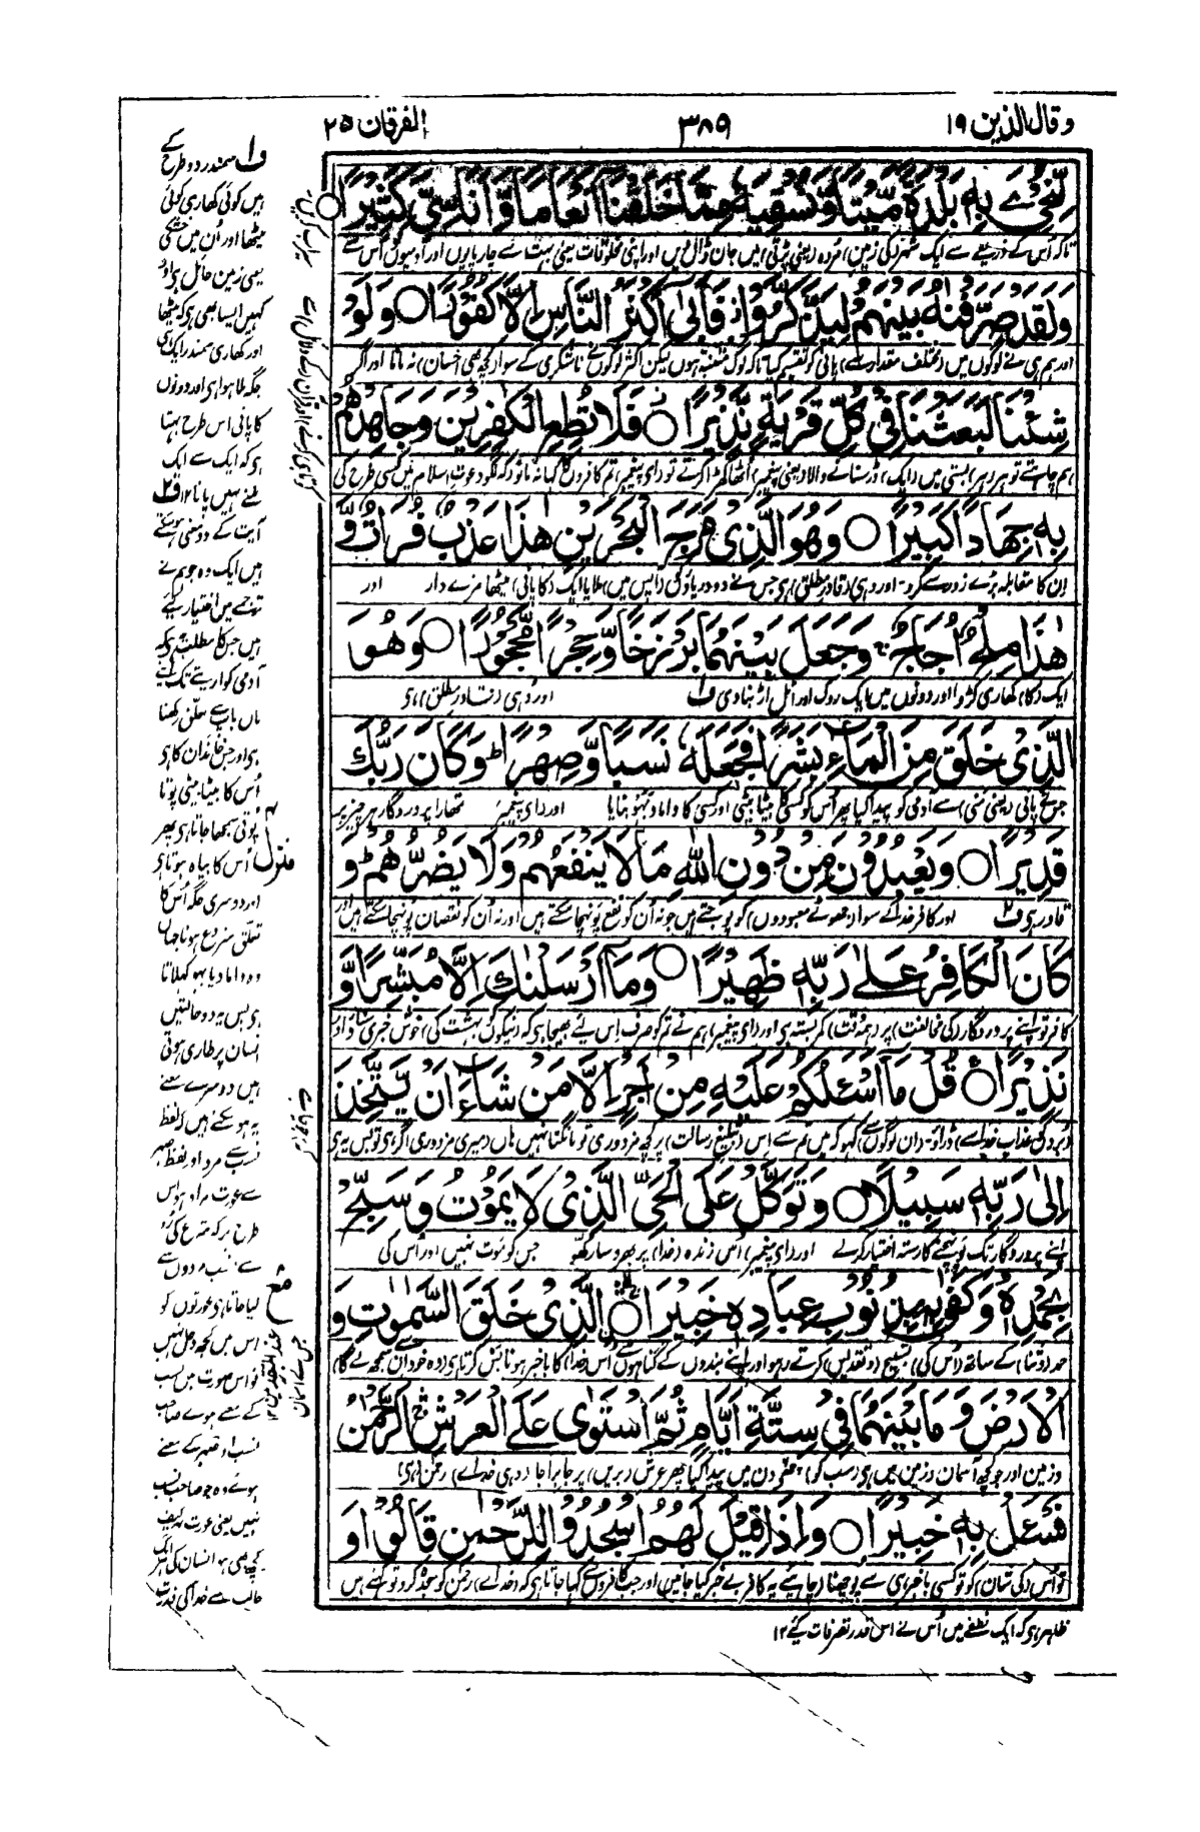 وقال الذین ۱۹
۳۸۹
الفرقان ۲۵
لِّنُحْیِۦَ بِهٖ بَلْدَةً مَّیْتًا وَّنُسْقِیَهٗ مِمَّا خَلَقْنَاۤ اَنْعَامًا وَّاَنَاسِیَّ كَثِیْرًا ○
تاکہ اُس کے ذریعے سے ایک شہر (کی زمین) مُردہ (یعنی پڑتی) میں جان ڈال دیں اور اپنی مخلوقات یعنی بہت سے چارپایوں اور آدمیوں کو اُس سے
وَلَقَدْ صَرَّفْنٰهُ بَیْنَهُمْ لِیَذَّكَّرُوْا ۖ فَاَبٰۤی اَكْثَرُ النَّاسِ اِلَّا كُفُوْرًا ○ وَلَوْ
اور ہم ہی نے لوگوں میں (مختلف مقدار سے) پانی کو تقسیم کیا تاکہ لوگ متنبہ ہوں لیکن اکثر لوگوں نے ناشکری کے سوا کچھ بھی (احسان) نہ مانا اور اگر
شِئْنَا لَبَعَثْنَا فِیْ كُلِّ قَرْیَةٍ نَّذِیْرًا ○ فَلَا تُطِعِ الْكٰفِرِیْنَ وَجَاهِدْهُمْ
ہم چاہتے تو ہر ہر بستی میں (ایک) ڈر سنانے والا (یعنی پیغمبر) اُٹھا کھڑا کرتے تو (اے پیغمبر) تم کافروں کا کہا نہ مانو
بِهٖ جِهَادًا كَبِیْرًا ○ وَهُوَ الَّذِیْ مَرَجَ الْبَحْرَیْنِ هٰذَا عَذْبٌ فُرَاتٌ وَّ
اِن کا مقابلہ بڑے زور سے کرو۔ اور وہی (قادرِ مطلق) ہی جس نے دو دریاؤں کو (آپس میں) ملایا ایک (کا پانی) میٹھا مزے دار اور
هٰذَا مِلْحٌ اُجَاجٌ ۚ وَجَعَلَ بَیْنَهُمَا بَرْزَخًا وَّحِجْرًا مَّحْجُوْرًا ○ وَهُوَ
ایک (کا) کھاری کڑوا اور دونوں میں ایک روک اور اٹل آڑ بنا دی ف۱ اور وہی (قادرِ مطلق) ہی
الَّذِیْ خَلَقَ مِنَ الْمَآءِ بَشَرًا فَجَعَلَهٗ نَسَبًا وَّصِهْرًا ؕ وَكَانَ رَبُّكَ
جس نے پانی (یعنی منی) سے آدمی کو پیدا کیا پھر اُس کو کسی کا بیٹا بیٹی اور کسی کا داماد بہو بنایا اور (اے پیغمبر) تمھارا پروردگار ہر چیز پر
قَدِیْرًا ○ وَیَعْبُدُوْنَ مِنْ دُوْنِ اللّٰهِ مَا لَا یَنْفَعُهُمْ وَلَا یَضُرُّهُمْ ؕ وَ
قادر ہی ف۲ اور کافر خدا کے سوا (جھوٹے معبودوں) کو پوجتے ہیں جو نہ اُن کو نفع پہنچا سکتے ہیں اور نہ اُن کو نقصان پہنچا سکتے ہیں اور
كَانَ الْكَافِرُ عَلٰی رَبِّهٖ ظَهِیْرًا ○ وَمَاۤ اَرْسَلْنٰكَ اِلَّا مُبَشِّرًا وَّ
کافر تو اپنے پروردگار (کی مخالفت) پر (ہمہ وقت) کمربستہ ہی اور (اے پیغمبر) ہم نے تم کو صرف اِس لیے بھیجا ہی کہ (نیکوں کو بہشت کی) خوش خبری سناؤ اور
نَذِیْرًا ○ قُلْ مَاۤ اَسْئَلُكُمْ عَلَیْهِ مِنْ اَجْرٍ اِلَّا مَنْ شَآءَ اَنْ یَّتَّخِذَ
(بدوں کو عذابِ خدا سے) ڈراؤ۔ (ان لوگوں سے) کہو کہ میں تم سے اِس (تبلیغِ رسالت) پر کچھ مزدوری تو مانگتا نہیں ہاں (میری مزدوری اگر ہی تو بس یہ ہی
اِلٰی رَبِّهٖ سَبِیْلًا ○ وَتَوَكَّلْ عَلَی الْحَیِّ الَّذِیْ لَا یَمُوْتُ وَسَبِّحْ
اپنے پروردگار تک پہنچنے کا رستہ اختیار کرلے اور (اے پیغمبر) اُس زندہ (خدا) پر بھروسا رکھو جس کو موت نہیں اور اُس کی
بِحَمْدِهٖ ؕ وَكَفٰی بِهٖ بِذُنُوْبِ عِبَادِهٖ خَبِیْرًا ○ الَّذِیْ خَلَقَ السَّمٰوٰتِ وَ
حمد (و ثنا) کے ساتھ (اُس کی) تسبیح (و تقدیس) کرتے رہو اور اپنے بندوں کے گناہوں سے اُس (خدا) کا باخبر ہونا بس کرتا ہی (وہ خود ان سے سمجھ لے گا)
الْاَرْضَ وَمَا بَیْنَهُمَا فِیْ سِتَّةِ اَیَّامٍ ثُمَّ اسْتَوٰی عَلَی الْعَرْشِ ۚۛ اَلرَّحْمٰنُ
و زمین اور جو کچھ آسمان و زمین میں ہی (سب کو) چھ دن میں پیدا کیا پھر عرش (بریں) پر جا براجا (وہی خدائے) رحمٰن (ہی)
فَسْئَلْ بِهٖ خَبِیْرًا ○ وَاِذَا قِیْلَ لَهُمُ اسْجُدُوْا لِلرَّحْمٰنِ قَالُوْا وَ
تو اُس (کی شان) کو تو کسی باخبر ہی سے پوچھنا چاہیے یہ کافر بے خبر کیا جانیں اور جب کافروں سے کہا جاتا ہی کہ (خدائے) رحمٰن کو سجدہ کرو تو کہتے ہیں
ف۱ سمندر دو طرح کے
ہیں کوئی کھاری کوئی
میٹھا اور اُن میں خشکی
یعنی زمین حائل ہی اور
کہیں ایسا بھی ہی کہ میٹھا
اور کھاری سمندر ایک ہی
جگہ ملا ہوا ہی اور دونوں
کا پانی اس طرح بہتا
ہی کہ ایک سے ایک
ملنے نہیں پاتا ۱۲ ف۲
آیت کے دو معنی ہو سکتے
ہیں ایک وہ جو ہم نے
ترجمے میں اختیار کیے
ہیں جس کا مطلب یہ کہ
آدمی کوارپنے تک اپنے
ماں باپ سے تعلق رکھتا
ہی اور جس خاندان کا ہو
اُس کا بیٹا بیٹی پوتا
پوتی سمجھا جاتا ہی پھر
اُس کا بیاہ ہوتا ہی
اور دوسری جگہ اُس کا
تعلق شروع ہوتا جہاں
وہ داماد یا بہو کہلاتا
ہی بس یہ دو حالتیں
انسان پر طاری ہوتی
ہیں دوسرے معنے
یہ ہو سکتے ہیں کہ لفظ
نسب سے مرد اور لفظ صہر
سے عورت مراد ہو اس
طرح پر کہ شرع کی رو
سے نسب مردوں سے
لیا جاتا ہی عورتوں کو
اس میں کچھ دخل نہیں
تو اس صورت میں نسب
کے معنے ہوے صاحب
نسب اور صہر کے معنے
ہوئے وہ جو صاحب نسب
نہیں یعنی عورت بہرکیف
کچھ بھی ہو انسان کی ہر ایک
حالت سے خدا کی قدرت
ظاہر ہی کہ ایک نطفے میں اُس نے اس قدر تصرفات کیے ۱۲
منزل ۴